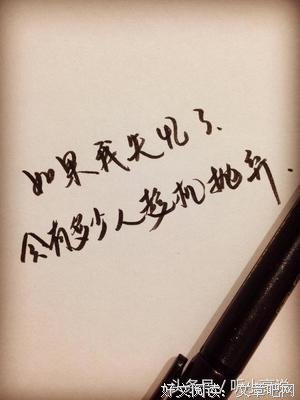 如果我失忆了、
会有多少人趁机抛弃.
头条号 / 听小
好文阅读：文章吧网